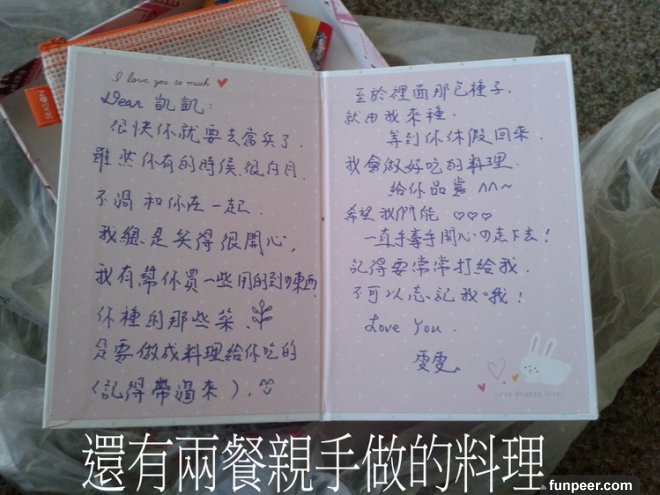 I love you so much
Dear 凱凱:
很快你就要去當兵了.
雖然你有的時候很白目.
不過和你在一起.
我總是笑得很開心.
我有幫你買一些用的到の東西.
你種的那些菜.
是要做成料理給你吃的
(記得帶過來).
至於裡面那包種子.
就由我來種.
等到你休假回來.
我會做好吃的料理.
給你品嘗 ^^~
希望我們能 ♡♡♡
一直手牽手開心の走下去!
記得要常常打給我.
不可以忘記我哦!
Love You.
雯雯
還有兩餐親手做的料理
funpeer.com